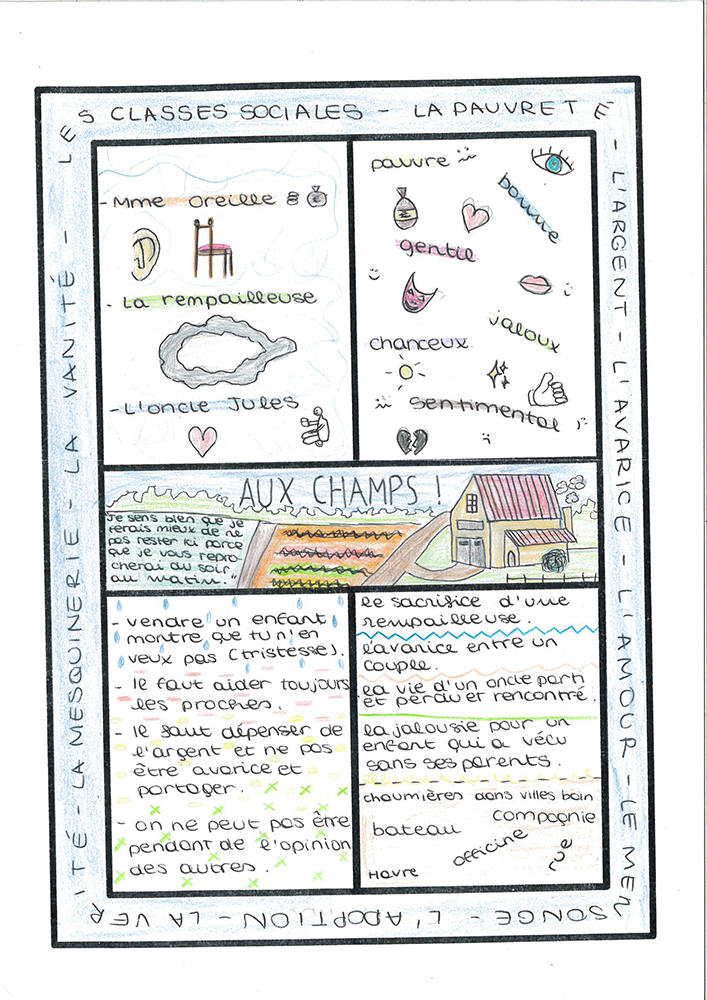 LES CLASSES SOCIALES - LA PAUVRETÉ - L'ARGENT - L'AVARICE - L'AMOUR - LE MENSONGE - L'ADOPTION - LA VERITÉ - LA MESQUINERIE - LA VANITÉ -
- Mme Oreille
- La rempailleuse
- L'oncle Jules
pauvre
bonne
gentil
jaloux
chanceux
sentimental
AUX CHAMPS !
"Je sens bien que je
ferais mieux de ne
pas rester ici parce
que je vous repro
cherai du soir
au matin."
- vendre un enfant
montre que tu n'en
veux pas (tristesse).
- Il faut aider toujours
les proches.
- Il faut dépenser de
l'argent et ne pas
être avarice et
partager.
- on ne peut pas être
pendant de l'opinion
des autres.
le sacrifice d'une
rempailleuse.
l'avarice entre un
couple.
la vie d'un oncle parti
et perdu et rencontré.
la jalousie pour un
enfant qui a vécu
sans ses parents.
chaumières dans villes bain
bateau
compagnie
officine
rue
Havre